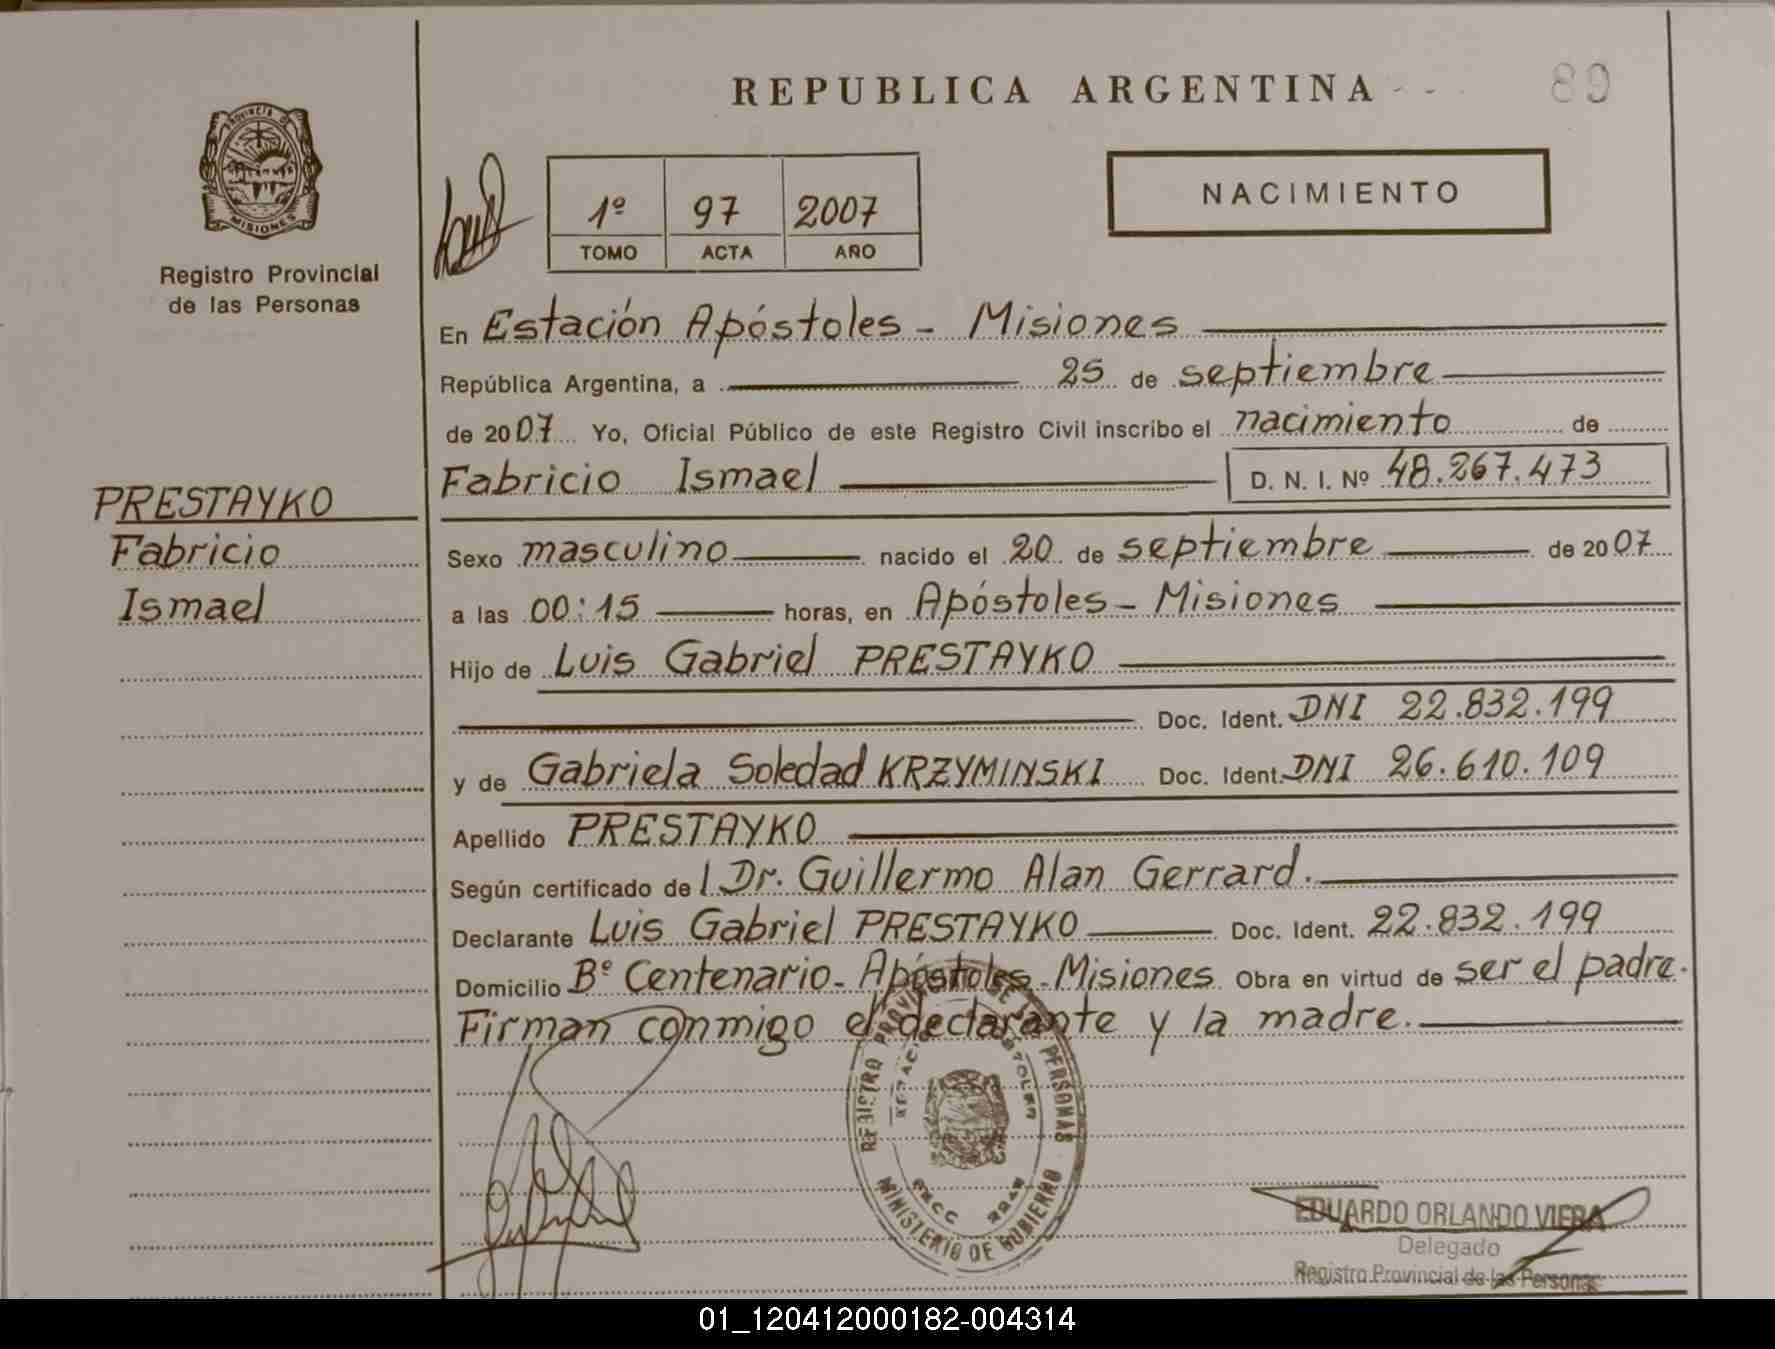 REPUBLICA ARGENTINA
89
PROVINCIA DE
MISIONES
Registro Provincial
de las Personas
1º 97 2007
TOMO ACTA AÑO
NACIMIENTO
En Estación Apóstoles - Misiones
República Argentina, a 25 de septiembre
de 2007 Yo, Oficial Público de este Registro Civil inscribo el nacimiento de
Fabricio Ismael D. N. I. Nº 48.267.473
PRESTAYKO
Fabricio
Ismael
Sexo masculino nacido el 20 de septiembre de 2007
a las 00:15 horas, en Apóstoles - Misiones
Hijo de Luis Gabriel PRESTAYKO
Doc. Ident. DNI 22.832.199
y de Gabriela Soledad KRZYMINSKI Doc. Ident. DNI 26.610.109
Apellido PRESTAYKO
Según certificado de l Dr. Guillermo Alan Gerrard.
Declarante Luis Gabriel PRESTAYKO Doc. Ident. 22.832.199
Domicilio Bº Centenario - Apóstoles - Misiones Obra en virtud de ser el padre.
Firman conmigo el declarante y la madre.
REGISTRO PROVINCIAL DE LAS PERSONAS
MINISTERIO DE GOBIERNO
EDUARDO ORLANDO VIERA
Delegado
Registro Provincial de las Personas
01_120412000182-004314